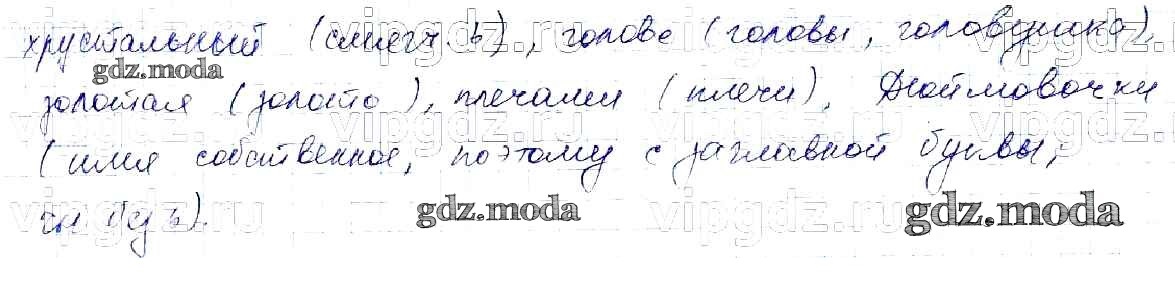 хрустальный (смягч ь), голове (головы, головушка),
золотая (золото), плечами (плечи), Дюймовочки
(имя собственное, поэтому с заглавной буквы,
чк без ь).
gdz.moda
gdz.moda
gdz.moda
vipgdz.ru